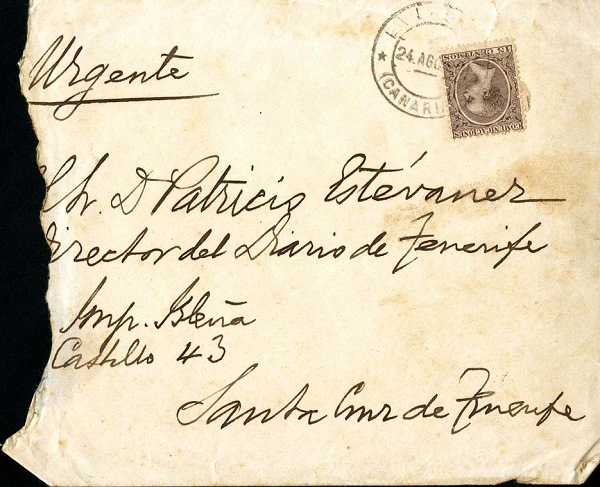 Urgente
24 AGO
(CANARI
15 CENTMOS
COMUNICACIONES
Sr. D Patricio Estévanez
Director del Diario de Tenerife
Imp. Isleña
Castillo 43
Santa Cruz de Tenerife